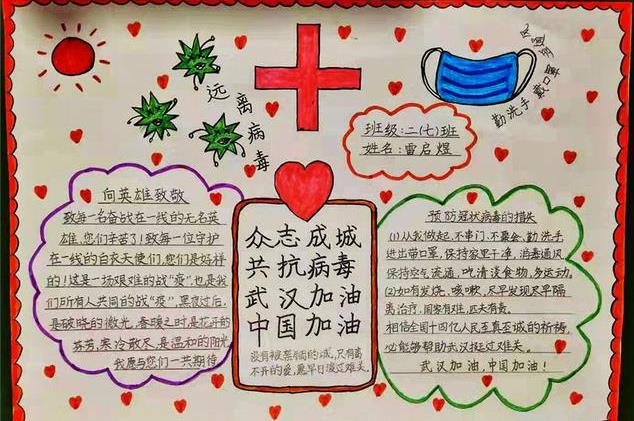 远离病毒
勤洗手 戴口罩
班级:二(七)班
姓名:雷启煜
向英雄致敬
致每一名奋战在一线的无名英
雄,您们辛苦了!致每一位守护
在一线的白衣天使们,您们是好样
的!这是一场艰难的战“疫”,也是我
们所有人共同的战“疫”,黑夜过后,
是破晓的微光,春暖之时,是花开的
芬芳,寒冷散尽,是温和的阳光,
我愿与您们一共期待
众志成城
共抗病毒
武汉加油
中国加油
没有被禁锢的城,只有离
不开的爱,愿早日渡过难关。
预防冠状病毒的措失
(1)从我做起,不串门、不聚会、勤洗手
进出带口罩,保持家里干净,消毒通风
保持空气流通,吃清谈食物,多运动。
(2)如有发烧、咳嗽、尽早发现尽早隔
离治疗,国家有难,匹夫有责。
相信全国十四亿人民至真至诚的祈祷,
必能够帮助武汉挺过难关。
武汉加油,中国加油!